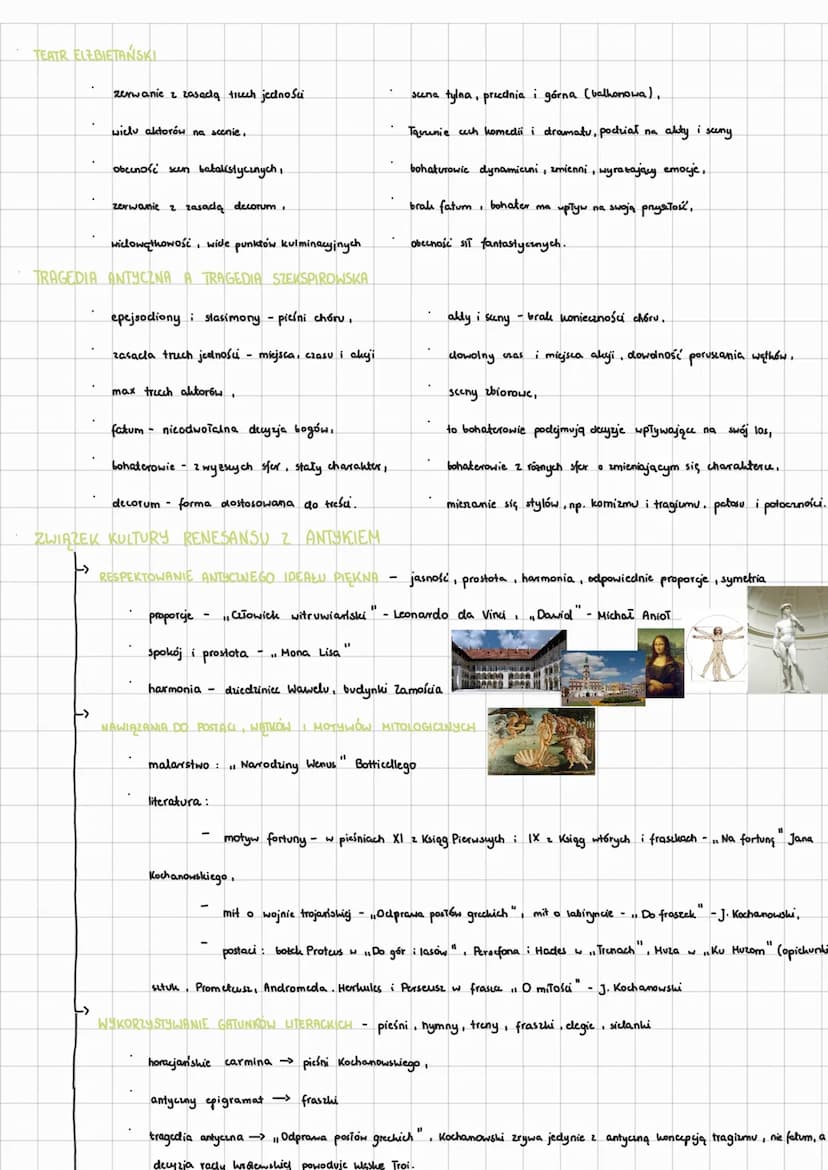 TEATR ELŻBIETAŃSKI
zerwanie z zasadą trzech jedności
wielu aktorów na scenie,
obecność scen batalistycznych,
zerwanie z zasadą decorum,
wielowątkowość, wiele punktów kulminacyjnych
scena tylna, przednia i górna (balkonowa),
Łączenie cech komedii i dramatu, podział na akty i sceny
bohaterowie dynamiczni, zmienni, wyrażający emocje,
brak fatum, bohater ma wpływ na swoją przyszłość,
obecność sił fantastycznych.
TRAGEDIA ANTYCZNA A TRAGEDIA SZEKSPIROWSKA
epejsodiony i stasimony - pieśni chóru,
zasada trzech jedności - miejsca, czasu i akcji
max trzech aktorów,
fatum - nieodwołalna decyzja bogów,
bohaterowie - z wyższych sfer, stały charakter,
decorum - forma dostosowana do treści.
akty i sceny - brak konieczności chóru,
dowolny czas i miejsca akcji, dowolność poruszania wątków,
sceny zbiorowe,
to bohaterowie podejmują decyzje wpływające na swój los,
bohaterowie z różnych sfer o zmieniającym się charakterze,
mieszanie się stylów, np. komizmu i tragizmu, patosu i potoczności.
ZWIĄZEK KULTURY RENESANSU Z ANTYKIEM
→ RESPEKTOWANIE ANTYCZNEGO IDEAŁU PIĘKNA - jasność, prostota, harmonia, odpowiednie proporcje, symetria
proporcje - „Człowiek witruwiański" - Leonardo da Vinci, „Dawid" - Michał Anioł
spokój i prostota - „Mona Lisa"
harmonia - dziedziniec Wawelu, budynki Zamościa
→ NAWIĄZANIA DO POSTACI, WĄTKÓW I MOTYWÓW MITOLOGICZNYCH
malarstwo: „Narodziny Wenus" Botticellego
literatura:
- motyw fortuny - w pieśniach XI z Ksiąg Pierwszych i IX z Ksiąg wtórych i fraszkach - „Na fortunę" Jana
Kochanowskiego,
- mit o wojnie trojańskiej - „Odprawa posłów greckich", mit o labiryncie - „Do fraszek" - J. Kochanowski,
- postaci: bożek Proteus w „Do gór i lasów", Persefona i Hades w „Trenach", Muza w „Ku Muzom" (opiekunki
sztuk, Prometeusz, Andromeda, Herkules i Perseusz w fraszce „O miłości" - J. Kochanowski
→ WYKORZYSTYWANIE GATUNKÓW LITERACKICH - pieśni, hymny, treny, fraszki, elegie, sielanki
horacjańskie carmina → pieśni Kochanowskiego,
antyczny epigramat → fraszki
tragedia antyczna → „Odprawa posłów greckich", Kochanowski zrywa jedynie z antyczną koncepcją tragizmu, nie fatum, a
decyzja rady królewskiej powoduje klęskę Troi.